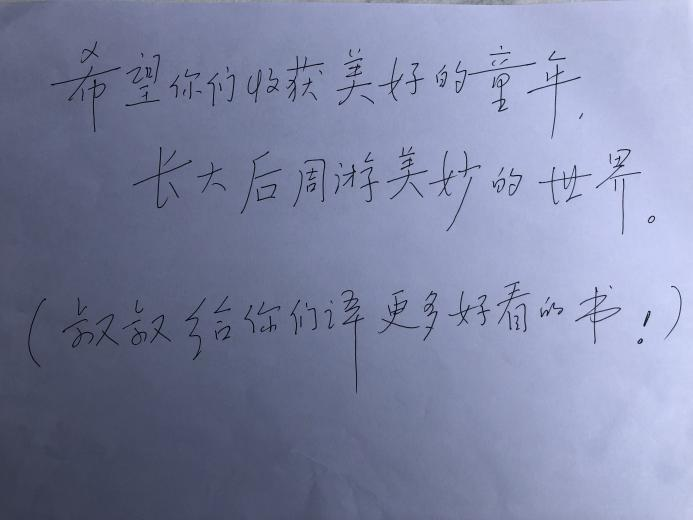 希望你们收获美好的童年,
长大后周游美妙的世界。
(叔叔给你们译更多好看的书!)